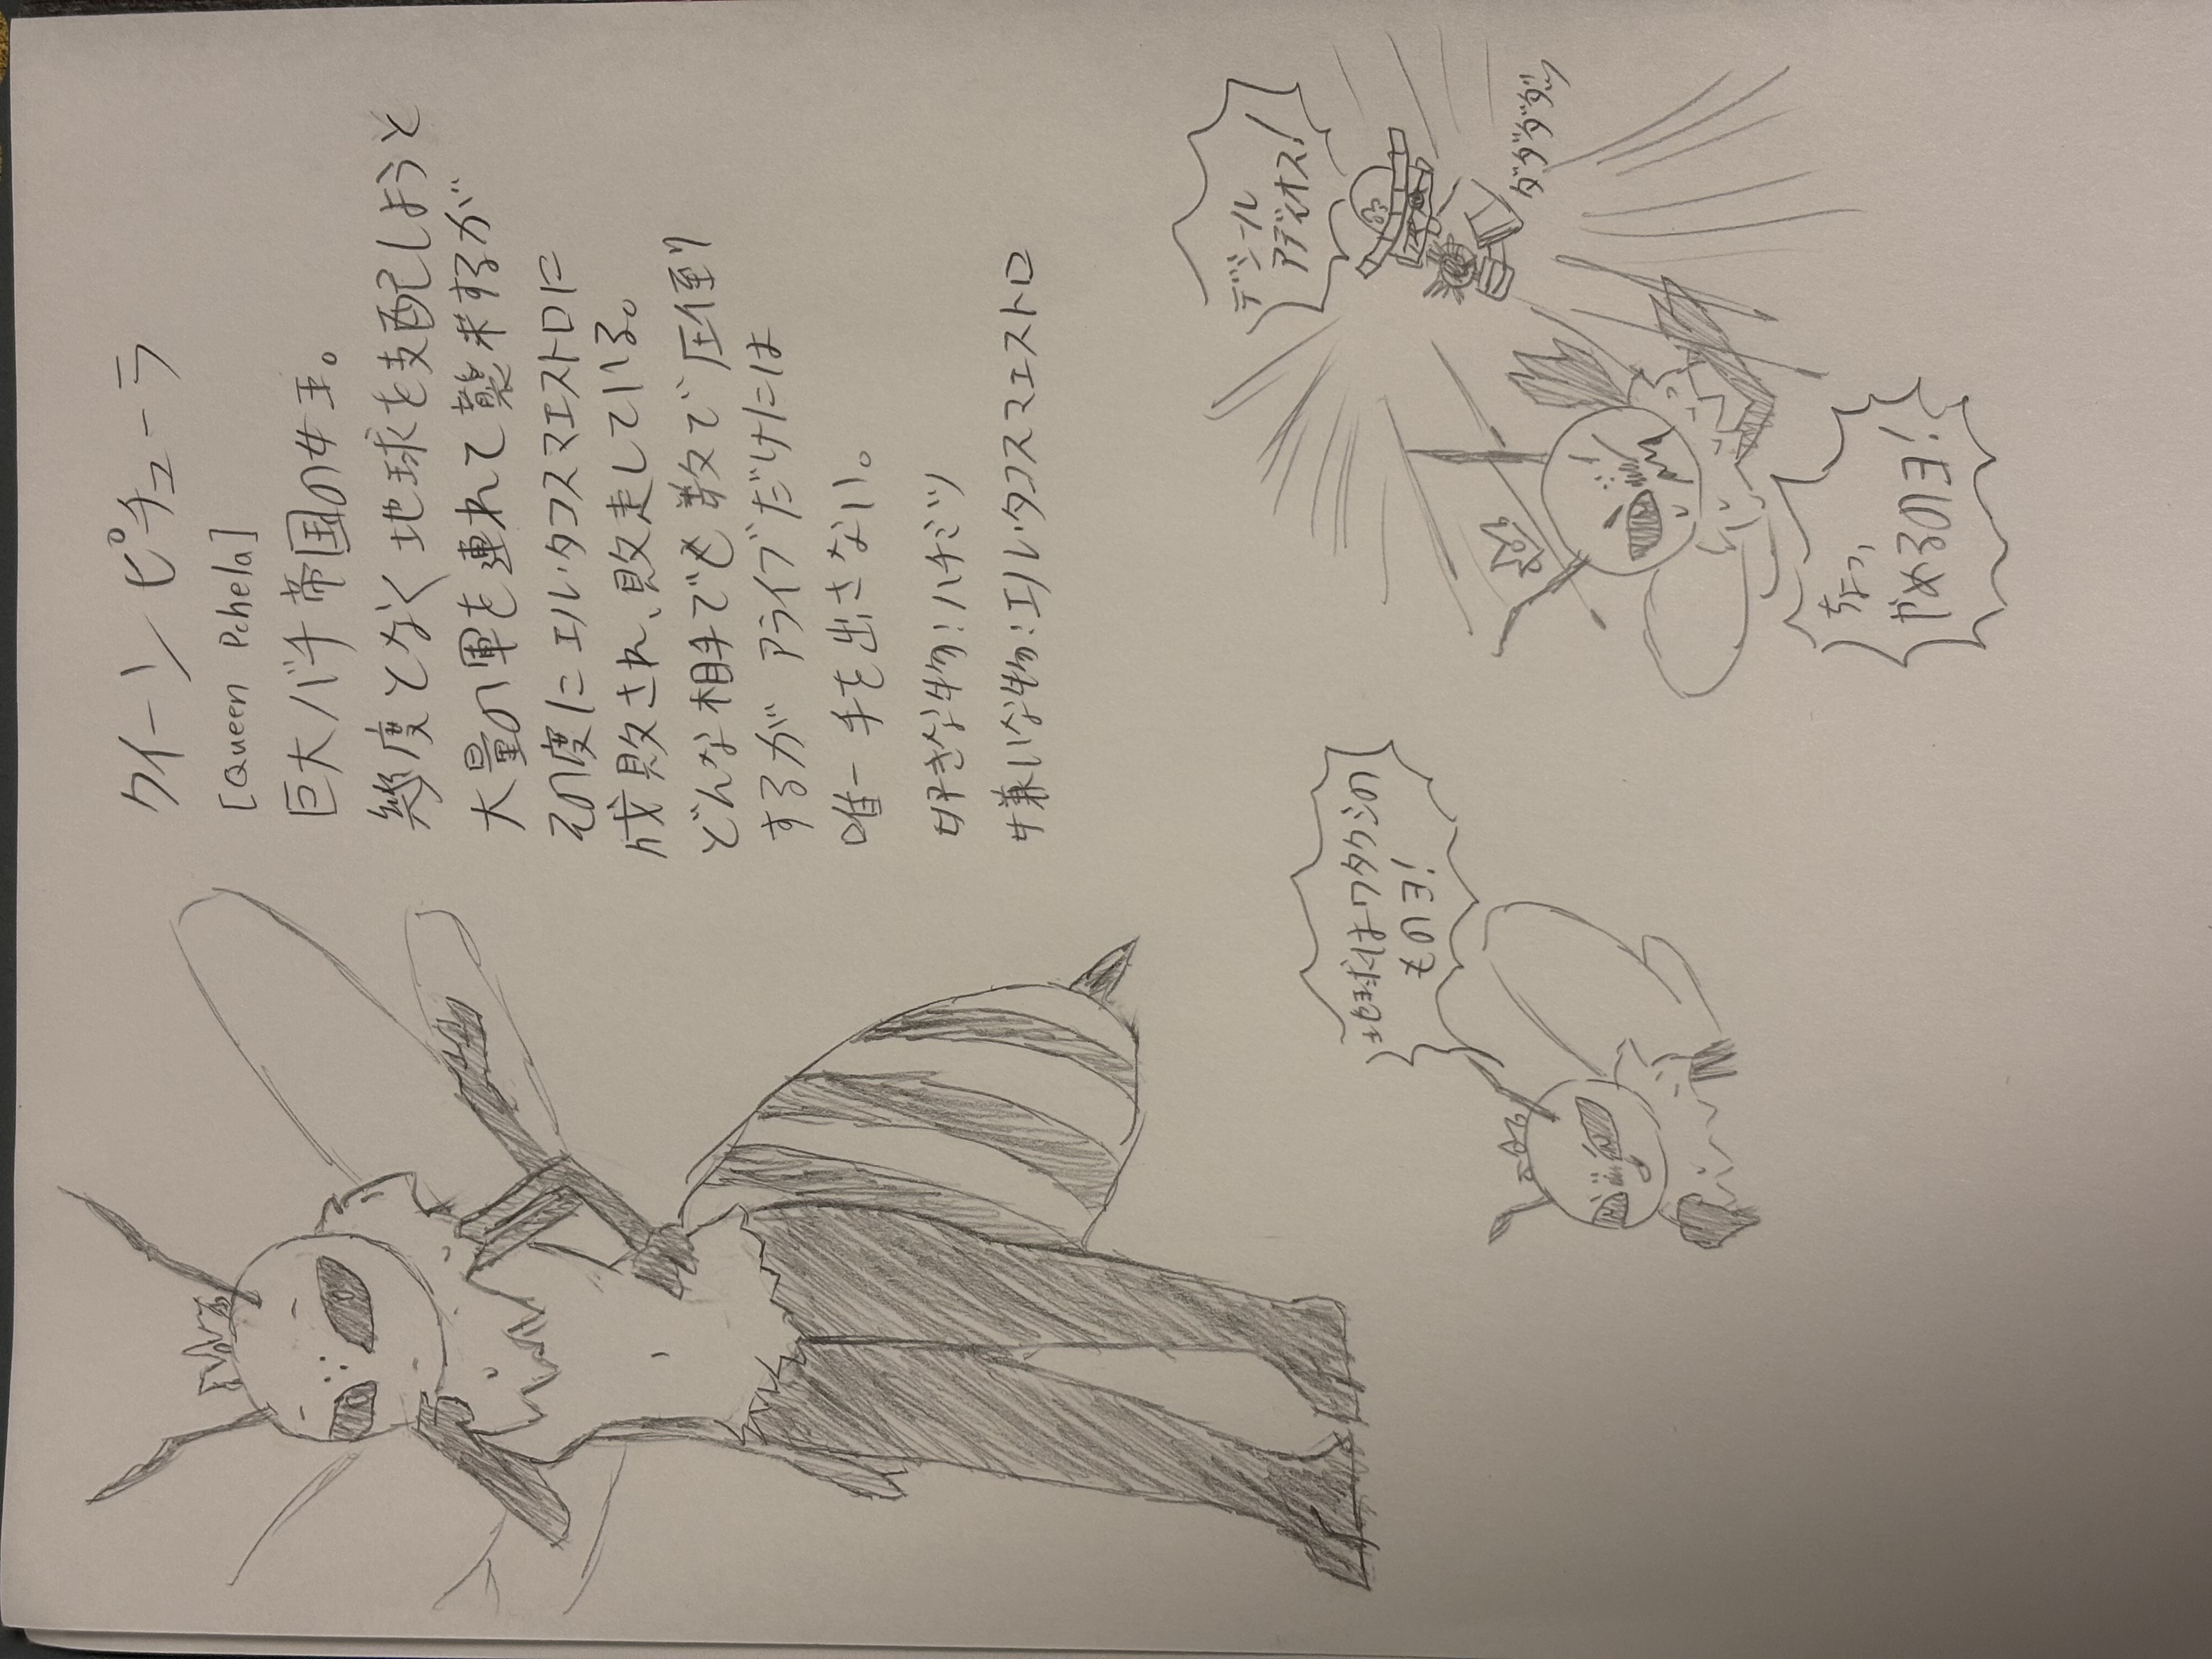 クイーンピチューラ
[Queen Pchela]
巨大バチ帝国の女王。
幾度となく地球を支配しようと
大量の軍を連れて襲来するが
その度にエル・タコスマエストロに
成敗され、敗走している。
どんな相手でも数で圧倒
するが アライブだけには
唯一手を出さない。
好きな物:ハチミツ
嫌いな物:エル・タコスマエストロ
地球はワタクシの
ものヨ!
デジール
アディオス!
ダダダダッ
ちょっ、
やめるのヨ!